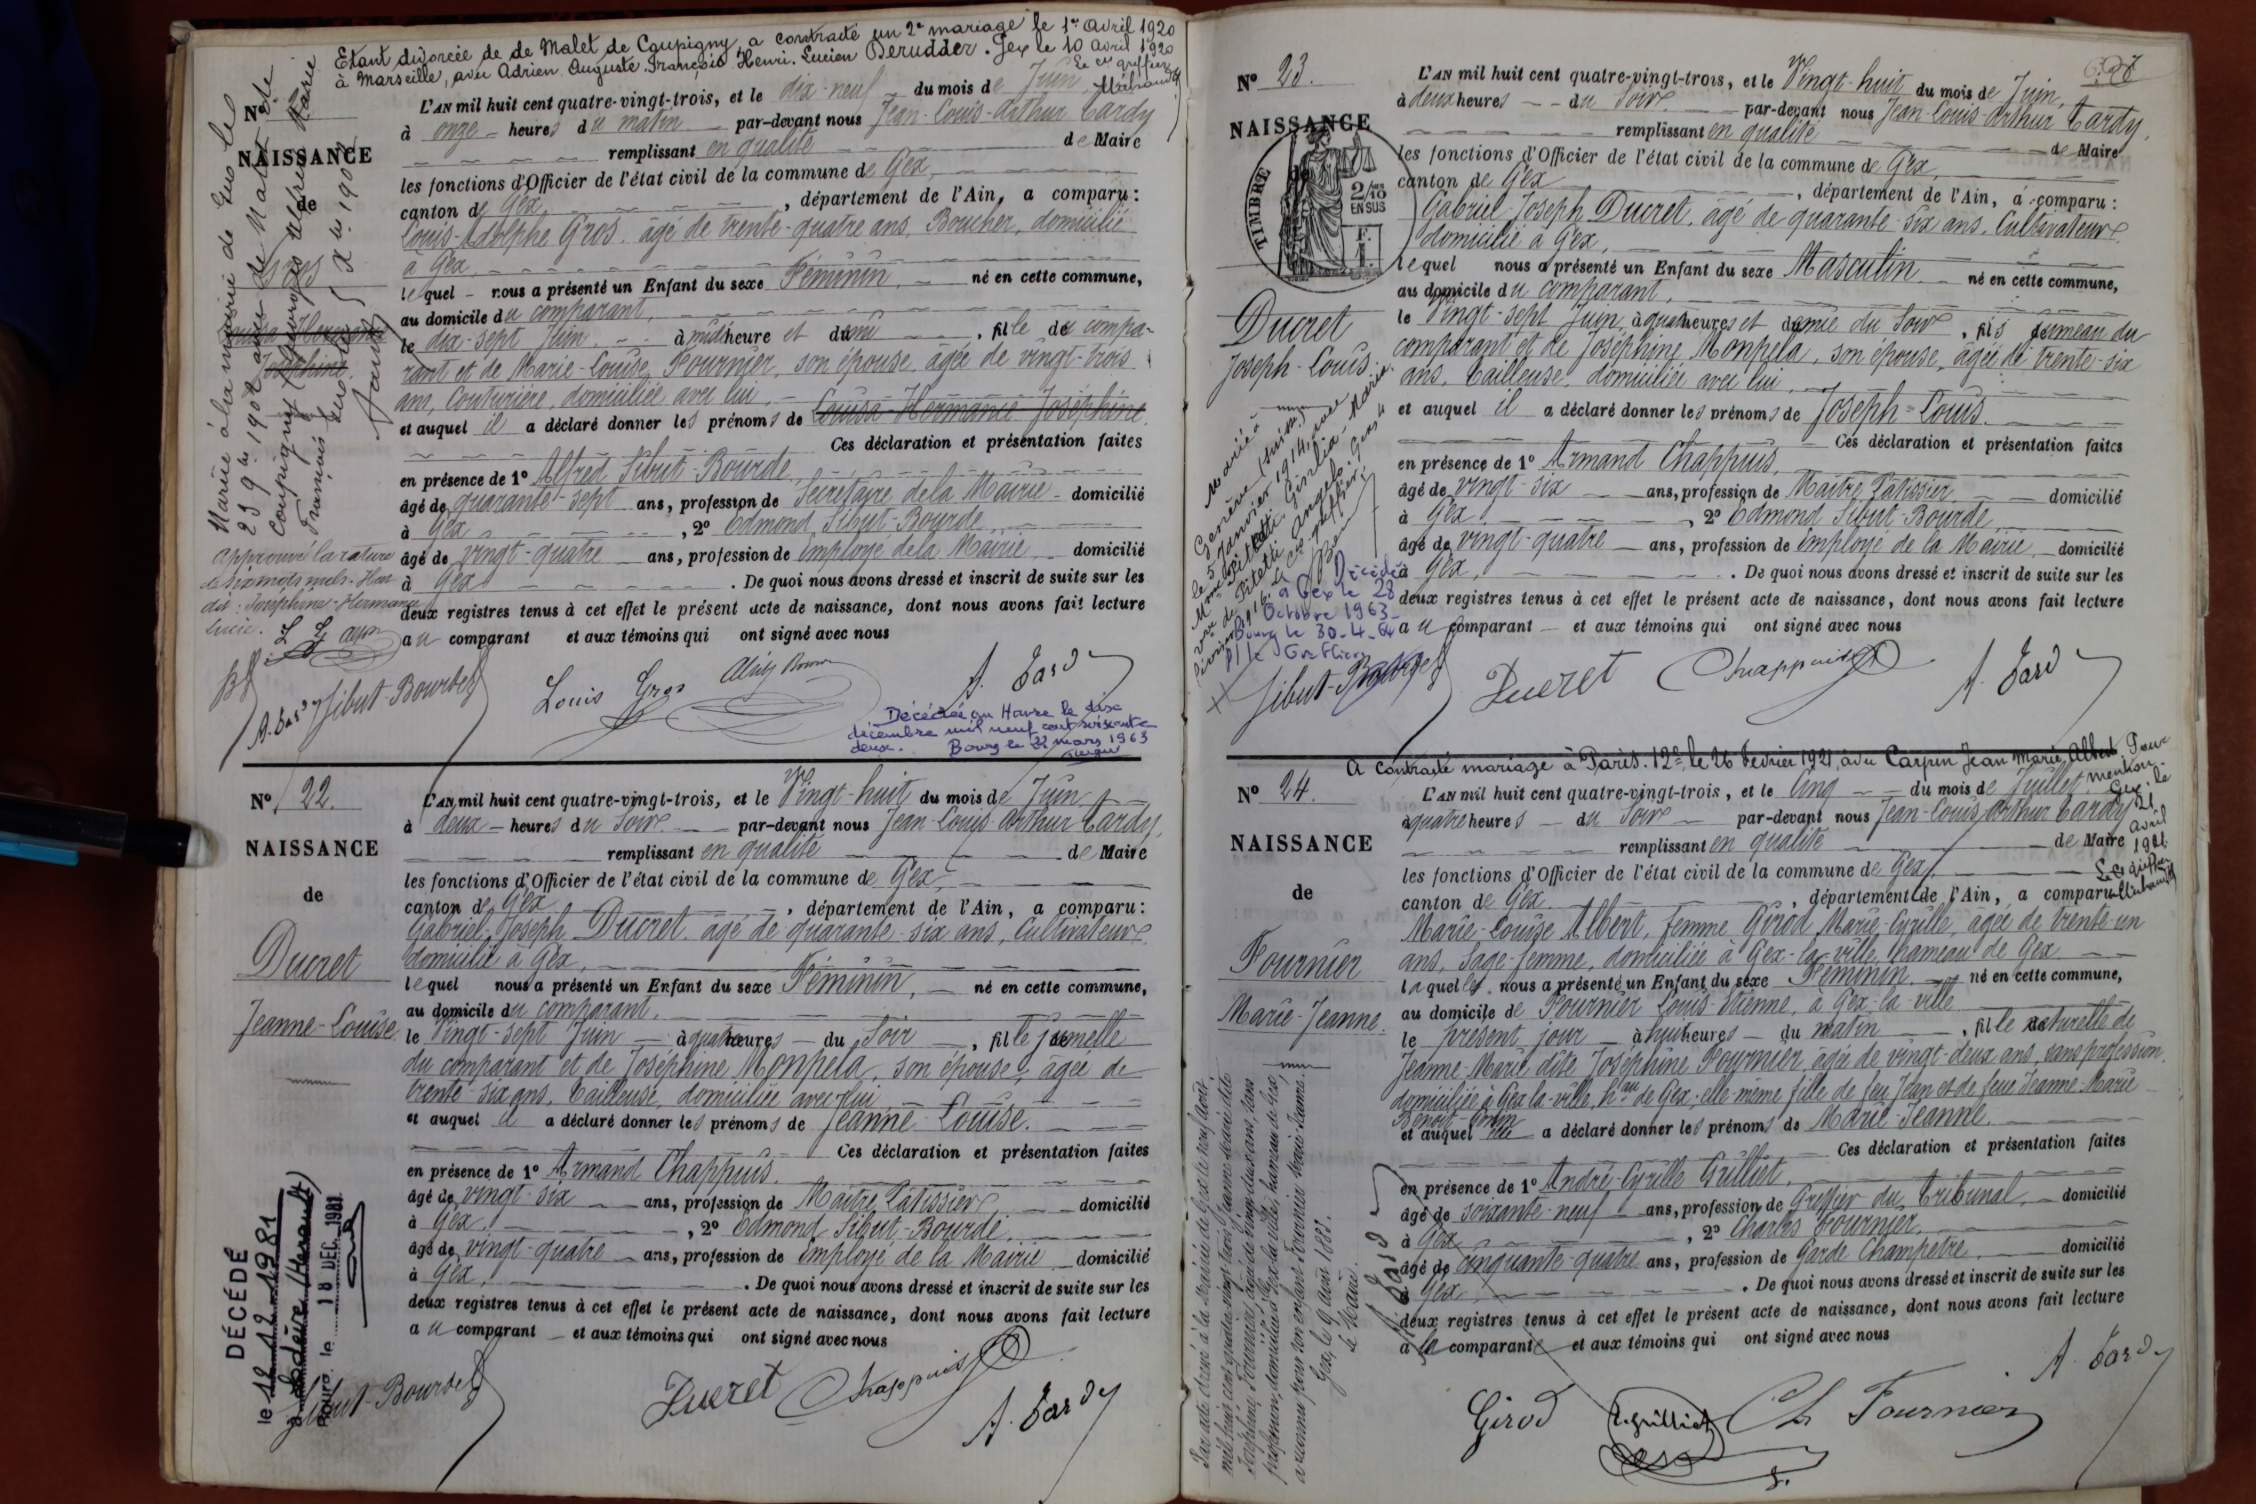 Etant divorcée de de Malet de Coupigny, a contracté un 2e mariage le 1er Avril 1920
à Marseille, avec Adrien Auguste François Henri Lucien Derudder. Gex le 10 avril 1920
Le cis greffier
N°
NAISSANCE
de
Gros
Louisa Hermanie
Joséphine
Mariée à la mairie de
23 9bre 1902 avec de Malet
Coupigny
François
approuvé la rature
de six mots nuls
dit : Joséphine-Hermance
Lucie.
L'AN mil huit cent quatre-vingt-trois, et le dix-neuf du mois de Juin
à onze heures du matin par-devant nous Jean-Louis-Arthur Tardy
remplissant en qualité de Maire
les fonctions d'Officier de l'état civil de la commune de Gex,
canton de Gex, département de l'Ain, a comparu :
Louis-Adolphe Gros, âgé de trente-quatre ans, Boucher, domicilié
à Gex
lequel nous a présenté un Enfant du sexe Féminin, né en cette commune,
au domicile du comparant,
le dix-sept Juin à midi heure et demi, fille du compa-
rant et de Marie-Louise Fournier, son épouse, âgée de vingt-trois
ans, Couturière, domiciliée avec lui,
et auquel il a déclaré donner les prénoms de Louisa-Hermanie-Joséphine
Ces déclaration et présentation faites
en présence de 1° Alfred Sibut-Bourde,
âgé de quarante-sept ans, profession de Secrétaire de la Mairie domicilié
à Gex, 2° Edmond Sibut-Bourde,
âgé de vingt-quatre ans, profession de Employé de la Mairie domicilié
à Gex. De quoi nous avons dressé et inscrit de suite sur les
deux registres tenus à cet effet le présent acte de naissance, dont nous avons fait lecture
au comparant et aux témoins qui ont signé avec nous
Sibut-Bourde
Louis Gros
A. Tardy
Décédée au Havre le dix
décembre mil neuf cent soixante
deux. Bourg le 22 mars 1963
N° 22.
NAISSANCE
de
Ducret
Jeanne-Louise
L'AN mil huit cent quatre-vingt-trois, et le Vingt-huit du mois de Juin
à deux heures du Soir par-devant nous Jean-Louis-Arthur Tardy,
remplissant en qualité de Maire
les fonctions d'Officier de l'état civil de la commune de Gex,
canton de Gex, département de l'Ain, a comparu :
Gabriel-Joseph Ducret, âgé de quarante-six ans, Cultivateur,
domicilié à Gex,
lequel nous a présenté un Enfant du sexe Féminin, né en cette commune,
au domicile du comparant,
le Vingt-sept Juin à quatre heures du Soir, fille jumelle
du comparant et de Joséphine Monpela, son épouse, âgée de
trente-six ans, Tailleuse, domiciliée avec lui
et auquel il a déclaré donner les prénoms de Jeanne-Louise.
Ces déclaration et présentation faites
en présence de 1° Armand Chappuis.
âgé de vingt-six ans, profession de Maître Pâtissier domicilié
à Gex, 2° Edmond Sibut-Bourde,
âgé de vingt-quatre ans, profession de Employé de la Mairie domicilié
à Gex. De quoi nous avons dressé et inscrit de suite sur les
deux registres tenus à cet effet le présent acte de naissance, dont nous avons fait lecture
au comparant et aux témoins qui ont signé avec nous
DÉCÉDÉ
le 12 12 1981
à Lodève (Hérault)
Bourg le 18 DEC. 1981
Sibut-Bourde
Ducret
Chappuis
A. Tardy
N° 23.
NAISSANCE
de
TIMBRE
2/10
EN SUS
Ducret
Joseph-Louis.
Marié à
Genève (Suisse)
le 5 Janvier 1914, avec
Décédé
à Gex le 28
Octobre 1963
Bourg le 30-4-64
L'AN mil huit cent quatre-vingt-trois, et le Vingt-huit du mois de Juin,
à deux heures du Soir par-devant nous Jean-Louis-Arthur Tardy,
remplissant en qualité de Maire
les fonctions d'Officier de l'état civil de la commune de Gex,
canton de Gex, département de l'Ain, a comparu :
Gabriel-Joseph Ducret, âgé de quarante-six ans, Cultivateur,
domicilié à Gex,
lequel nous a présenté un Enfant du sexe Masculin né en cette commune,
au domicile du comparant,
le Vingt-sept Juin, à quatre heures et demie du Soir, fils jumeau du
comparant et de Joséphine Monpela, son épouse, âgée de trente-six
ans, Tailleuse, domiciliée avec lui,
et auquel il a déclaré donner les prénoms de Joseph-Louis.
Ces déclaration et présentation faites
en présence de 1° Armand Chappuis,
âgé de vingt-six ans, profession de Maître Pâtissier domicilié
à Gex, 2° Edmond Sibut-Bourde,
âgé de vingt-quatre ans, profession de Employé de la Mairie domicilié
à Gex. De quoi nous avons dressé et inscrit de suite sur les
deux registres tenus à cet effet le présent acte de naissance, dont nous avons fait lecture
au comparant et aux témoins qui ont signé avec nous
Sibut-Bourde
Ducret
Chappuis
A. Tardy
A contracté mariage à Paris. 12e, le 26 Février 1921, avec Carpin Jean Marie Albert Pour
mention.
Gex. le
21
avril
1921.
N° 24.
NAISSANCE
de
Fournier
Marie-Jeanne.
L'AN mil huit cent quatre-vingt-trois, et le Cinq du mois de Juillet
à quatre heures du Soir par-devant nous Jean-Louis-Arthur Tardy
remplissant en qualité de Maire
les fonctions d'Officier de l'état civil de la commune de Gex,
canton de Gex, département de l'Ain, a comparu
Marie-Louise Albert, femme Girod Marie-Cyrille, âgée de trente-un
ans, Sage-femme, domiciliée à Gex-la-ville, hameau de Gex
laquelle nous a présenté un Enfant du sexe Féminin né en cette commune,
au domicile de Fournier Louis-Etienne, à Gex-la-ville
le présent jour à huit heures du matin, fille naturelle de
Jeanne-Marie dite Joséphine Fournier âgée de vingt-deux ans, sans profession,
domiciliée à Gex-la-ville, hau de Gex ; elle-même fille de feu Jean et de feue Jeanne-Marie
et auquel elle a déclaré donner les prénoms de Marie-Jeanne.
Ces déclaration et présentation faites
en présence de 1° André-Cyrille Grilliet,
âgé de soixante-neuf ans, profession de Greffier du Tribunal, domicilié
à Gex, 2° Charles Fournier,
âgé de Cinquante-quatre ans, profession de Garde Champêtre domicilié
à Gex. De quoi nous avons dressé et inscrit de suite sur les
deux registres tenus à cet effet le présent acte de naissance, dont nous avons fait lecture
à la comparante et aux témoins qui ont signé avec nous
Par acte dressé à la Mairie de Gex le neuf août
mil huit cent quatre-vingt-trois, Jeanne-Marie dite
Joséphine Fournier, âgée de vingt-deux ans, sans
profession, domiciliée à Gex-la-ville, hameau de Gex,
a reconnu pour son enfant Fournier Marie-Jeanne.
Gex, le 9 août 1883.
Le Maire.
A. Tardy
Girod
Grilliet
Ch Fournier
A. Tardy